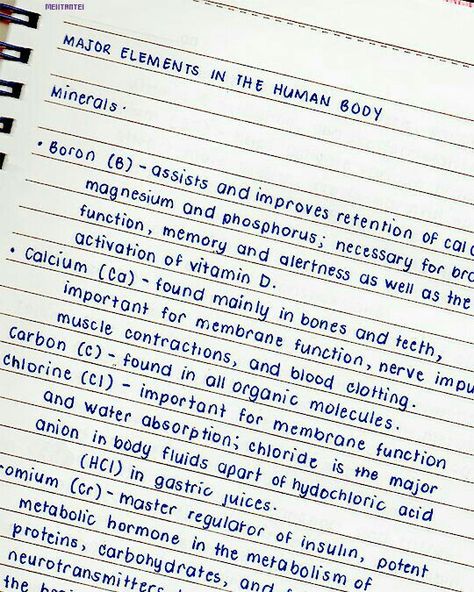 MEIITANTEI
MAJOR ELEMENTS IN THE HUMAN BODY
Minerals.
• Boron (B) - assists and improves retention of calc
magnesium and phosphorus; necessary for bra
function, memory and alertness as well as the
activation of vitamin D.
• Calcium (Ca) - found mainly in bones and teeth,
important for membrane function, nerve impu
muscle contractions, and blood clotting.
Carbon (C) - found in all organic molecules.
chlorine (Cl) - important for membrane function
and water absorption; chloride is the major
anion in body fluids apart of hydochloric acid
(HCl) in gastric juices.
romium (Cr) - master regulator of insulin, potent
metabolic hormone in the metabolism of
proteins, carbohydrates, and f
neurotransmitters
the brai